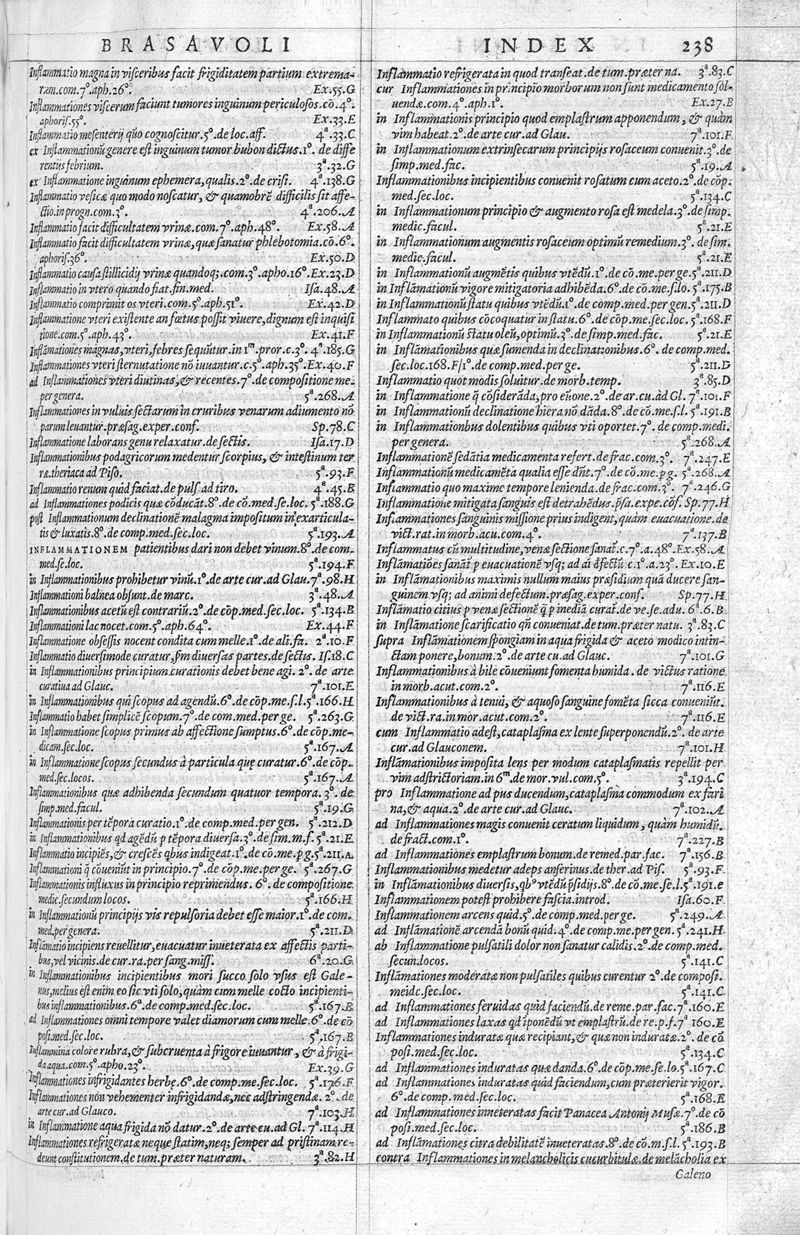 BRASAVOLI
Inflammatio magna in visceribus facit frigiditatem partium extrema-
rum.com.7ª.aph.26°. Ex.55.G
Inflammationes viscerum faciunt tumores inguinum periculosos.cō.4°.
aphoris.55°. Ex.33.E
Inflammatio mesenterij quō cognoscitur.5°.de loc.aff. 4ª.33.C
ex Inflammationū genere est inguinum tumor bubon dictus.1°. de diffe
rentijs febrium. 3ª.32.G
ex Inflammatione inguinum ephemera, qualis.2°.de crisi. 4ª.138.G
Inflammatio vesicæ quo modo noscatur, & quamobrē difficilis sit affe-
ctio.in progn.com.3°. 4ª.206.A
Inflammatio facit difficultatem vrinæ.com.7°.aph.48°. Ex.58.A
Inflammatio facit difficultatem vrinæ, quæ sanatur phlebotomia.cō.6°.
aphoris.36°. Ex.50.D
Inflammatio causa stillicidij vrinæ quandoq;.com.3°.apho.16°.Ex.23.D
Inflammatio in vtero quando fiat.fin.med. Isa.48.A
Inflammatio comprimit os vteri.com.5°.aph.51°. Ex.42.D
Inflammatione vteri existente an fœtus possit viuere, dignum est inquisi
tione.com.5°.aph.43°. Ex.41.F
Inflāmationes magnas, vteri, febres sequūtur.in 1ᵐ.pror.c.3°. 4ª.185.G
Inflammationes vteri sternutatione nō iuuantur.c.5°.aph.35°.Ex.40.F
ad Inflammationes vteri diutinas, & recentes.7°.de compositione me.
per genera. 5ª.268.A
Inflammationes in vuluis sectarum in cruribus venarum adiumento nō
parum leuantur.præsag.exper.conf. Sp.78.C
Inflammatione laborans genu relaxatur.de sectis. Isa.17.D
Inflammationibus podagricorum medentur scorpius, & intestinum ter
ræ.theriaca ad Piso. 5ª.93.F
Inflammatio renum quid faciat.de puls.ad tiro. 4ª.45.B
ad Inflammationes podicis quæ cōducāt.8°.de cō.med.se.loc. 5ª.188.G
post Inflammationum declinationē malagma impositum in exarticula-
tis & luxatis.8°.de comp.med.sec.loc. 5ª.193.A
INFLAMMATIONEM patientibus dari non debet vinum.8°.de com.
med.se.loc. 5ª.194.F
in Inflammationibus prohibetur vinū.1°.de arte cur.ad Glau.7ª.98.H
Inflammationi balnea obsunt.de marc. 3ª.48.A
Inflammationibus acetū est contrariū.2°.de cōp.med.sec.loc. 5ª.134.B
Inflammationi lac nocet.com.5°.aph.64°. Ex.44.F
Inflammatione obsessis nocent condita cum melle.1°.de ali.fa. 2ª.10.F
Inflammatio diuersimode curatur, s̄m diuersas partes.de sectis. Is.18.C
in Inflammationibus principium curationis debet bene agi. 2°. de arte
curatiua ad Glauc. 7ª.101.E
in Inflammationibus qui scopus ad agendū.6°.de cōp.me.s.l.5ª.166.H
Inflammatio habet simplicē scopum.7°.de com.med.per ge. 5ª.263.G
in Inflammatione scopus primus ab affectione sumptus.6°.de cōp.me-
dicam.sec.loc. 5ª.167.A
in Inflammatione scopus secundus à particula quæ curatur.6°.de cōp.
med.sec.locos. 5ª.167.A
Inflammationibus quæ adhibenda secundum quatuor tempora. 3°. de
simp.med.facul. 5ª.19.G
Inflammationis per tēpora curatio.1°.de comp.med.per gen. 5ª.212.D
in Inflammationibus qd agēdū p tēpora diuersa.3°.de sim.m.f. 5ª.21.E
Inflammatio incipiēs, & crescēs qbus indigeat.1°.de cō.me.pg.5ª.211.A
Inflammationi q̄ cōueniūt in principio.7°.de cōp.me.perge. 5ª.267.G
Inflammationis influxus in principio reprimendus. 6°. de compositione
medic.secundum locos. 5ª.166.H
in Inflammationū principijs vis repulsoria debet esse maior.1°.de com.
med.per genera. 5ª.211.D
Inflammatio incipiens reuellitur, euacuatur inueterata ex affectis parti-
bus, vel vicinis.de cur.ra.per sang.miss. 6ª.20.G
in Inflammationibus incipientibus mori succo solo vsus est Gale-
nus, melius est enim eo sic vti solo, quàm cum melle cocto incipienti-
bus inflammationibus.6°.de comp.med.sec.loc. 5ª.167.B
ad Inflammationes omni tempore valet diamorum cum melle.6°.de cō
posi.med.sec.loc. 5ª.167.B
Inflammina colore rubra, & subcruenta à frigore iuuantur, & à frigi-
da aqua.com.5°.apho.23°. Ex.39.G
Inflammationes infrigidantes herbę.6°.de comp.me.sec.loc. 5ª.176.F
Inflammationes non vehementer infrigidandæ, nec adstringendæ. 2°. de
arte cur.ad Glauco. 7ª.103.H
in Inflammatione aqua frigida nō datur.2°.de arte cu.ad Gl. 7ª.114.H
Inflammationes refrigeratæ neque statim, neq; semper ad pristinam re-
deunt constitutionem.de tum.præter naturam. 3ª.82.H
INDEX 238
Inflāmatio refrigerata in quod transeat.de tum.præter na. 3ª.83.C
cur Inflammationes in principio morborum non sunt medicamento sol-
uendæ.com.4°.aph.1°. Ex.27.B
in Inflammationis principio quod emplastrum apponendum, & quàm
vim habeat.2°.de arte cur.ad Glau. 7ª.101.F
in Inflammationum extrinsecarum principijs rosaceum conuenit.3°.de
simp.med.fac. 5ª.19.A
Inflammationibus incipientibus conuenit rosatum cum aceto.2°.de cōp.
med.sec.loc. 5ª.134.C
in Inflammationum principio & augmento rosa est medela.3°.de simp.
medic.facul. 5ª.21.E
in Inflammationum augmentis rosaceum optimū remedium.3°. de sim.
medic.facul. 5ª.21.E
in Inflammationū augmētis quibus vtēdū.1°.de cō.me.per ge.5ª.211.D
in Inflāmationū vigore mitigatoria adhibēda.6°.de cō.me.s.lo. 5ª.175.B
in Inflammationū statu quibus vtēdū.1°.de comp.med.per gen.5ª.211.D
Inflammato quibus cōcoquatur in statu.6°.de cōp.me.sec.loc. 5ª.168.F
in Inflammationū statu oleū, optimū.3°.de simp.med.fac. 5ª.21.E
in Inflammationibus quæ sumenda in declinationibus.6°. de comp.med.
sec.loc.168.F/1°.de comp.med.per ge. 5ª.211.D
Inflammatio quot modis soluitur.de morb.temp. 3ª.85.D
in Inflammatione q̄ cōsiderāda, pro eūone.2°.de ar.cu.ad Gl. 7ª.101.F
in Inflammationū declinatione hiera nō dāda.8°.de cō.me.s.l. 5ª.191.B
in Inflammationbus dolentibus quibus vti oportet.7°. de comp.medi.
per genera. 5ª.268.A
Inflammationē sedātia medicamenta refert.de frac.com.3°. 7ª.247.E
Inflammationū medicamēta qualia esse dn̄t.7°.de cō.me.pg. 5ª.268.A
Inflammatio quo maxime tempore lenienda.de frac.com.3°. 7ª.246.G
Inflammatione mitigata sanguis est detrahēdus.p̄sa.expe.cōf. Sp.77.H
Inflammationes sanguinis missione prius indigent, quàm euacuatione.de
vict.rat.in morb.acu.com.4°. 7ª.137.B
Inflammatus cū multitudine, venæ sectione sanat.c.7°.a.48°.Ex.58.A
Inflāmatiōes sanāt p euacuationē vsq; ad ai dfectū c.1°.a.23°.Ex.10.E
in Inflammationibus maximis nullum maius præsidium quā ducere san-
guinem vsq; ad animi defectum.præsag.exper.conf. Sp.77.H
Inflammatio citius p venæ sectionē q̄ p inediā curat.de ve.se.adu. 6ª.6.B
in Inflāmatione scarificatio qn̄ conueniat.de tum.præter natu. 3ª.83.C
supra Inflāmationem spongiam in aqua frigida & aceto modico intin-
ctam ponere, bonum.2°.de arte cu.ad Glauc. 7ª.101.G
Inflammationibus à bile cōueniunt fomenta humida. de victus ratione
in morb.acut.com.2°. 7ª.116.E
Inflammationibus à tenui, & aquoso sanguine fomēta sicca conueniūt.
de vict.ra.in mor.acut.com.2°. 7ª.116.E
cum Inflammatio adest, cataplasma ex lente superponendū.2°. de arte
cur.ad Glauconem. 7ª.101.H
Inflāmationibus imposita lens per modum cataplasmatis repellit per
vim adstrictoriam.in 6ᵐ.de mor.vul.com.5°. 3ª.194.C
pro Inflammatione ad pus ducendum, cataplasma commodum ex fari
na, & aqua.2°.de arte cur.ad Glauc. 7ª.102.A
ad Inflammationes magis conuenit ceratum liquidum, quàm humidū.
de fract.com.1°. 7ª.227.B
ad Inflammationes emplastrum bonum.de remed.par.fac. 7ª.156.B
Inflammationibus medetur adeps anserinus.de ther.ad Pis. 5ª.93.F
in Inflammationibus diuersis, qbº vtēdū p̄sidijs.8°.de cō.me.se.l.5ª.191.e
Inflammationem potest prohibere fascia.introd. Isa.60.F
Inflammationem arcens quid.5°.de comp.med.per ge. 5ª.249.A
ad Inflāmationē arcendā bonū quid.4°.de comp.me.per gen. 5ª.241.H
ab Inflammatione pulsatili dolor non sanatur calidis.2°.de comp.med.
secun.locos. 5ª.141.C
Inflāmationes moderatæ non pulsatiles quibus curentur 2°.de composi.
meidc.sec.loc. 5ª.141.C
ad Inflammationes feruidas quid faciendū.de reme.par.fac.7ª.160.E
ad Inflammationes laxas qd īponēdū vt emplastrū.de re.p.f.7ª.160.E
Inflammationes induratæ quæ recipiant, & quæ non induratæ.2°. de cō
posi.med.sec.loc. 5ª.134.C
ad Inflammationes induratas quæ danda.6°.de cōp.me.se.lo.5ª.167.C
ad Inflammationes induratas quid faciendum, cum præterierit vigor.
6°.de comp.med.sec.loc. 5ª.168.E
ad Inflammationes inueteratas facit Panacea Antonij Musæ.7°.de cō
posi.med.sec.loc. 5ª.186.B
ad Inflāmationes citra debilitatē inueteratas.8°.de cō.m.s.l. 5ª.193.B
contra Inflammationes in melancholicis cucurbitulæ.de melācholia ex
Galeno